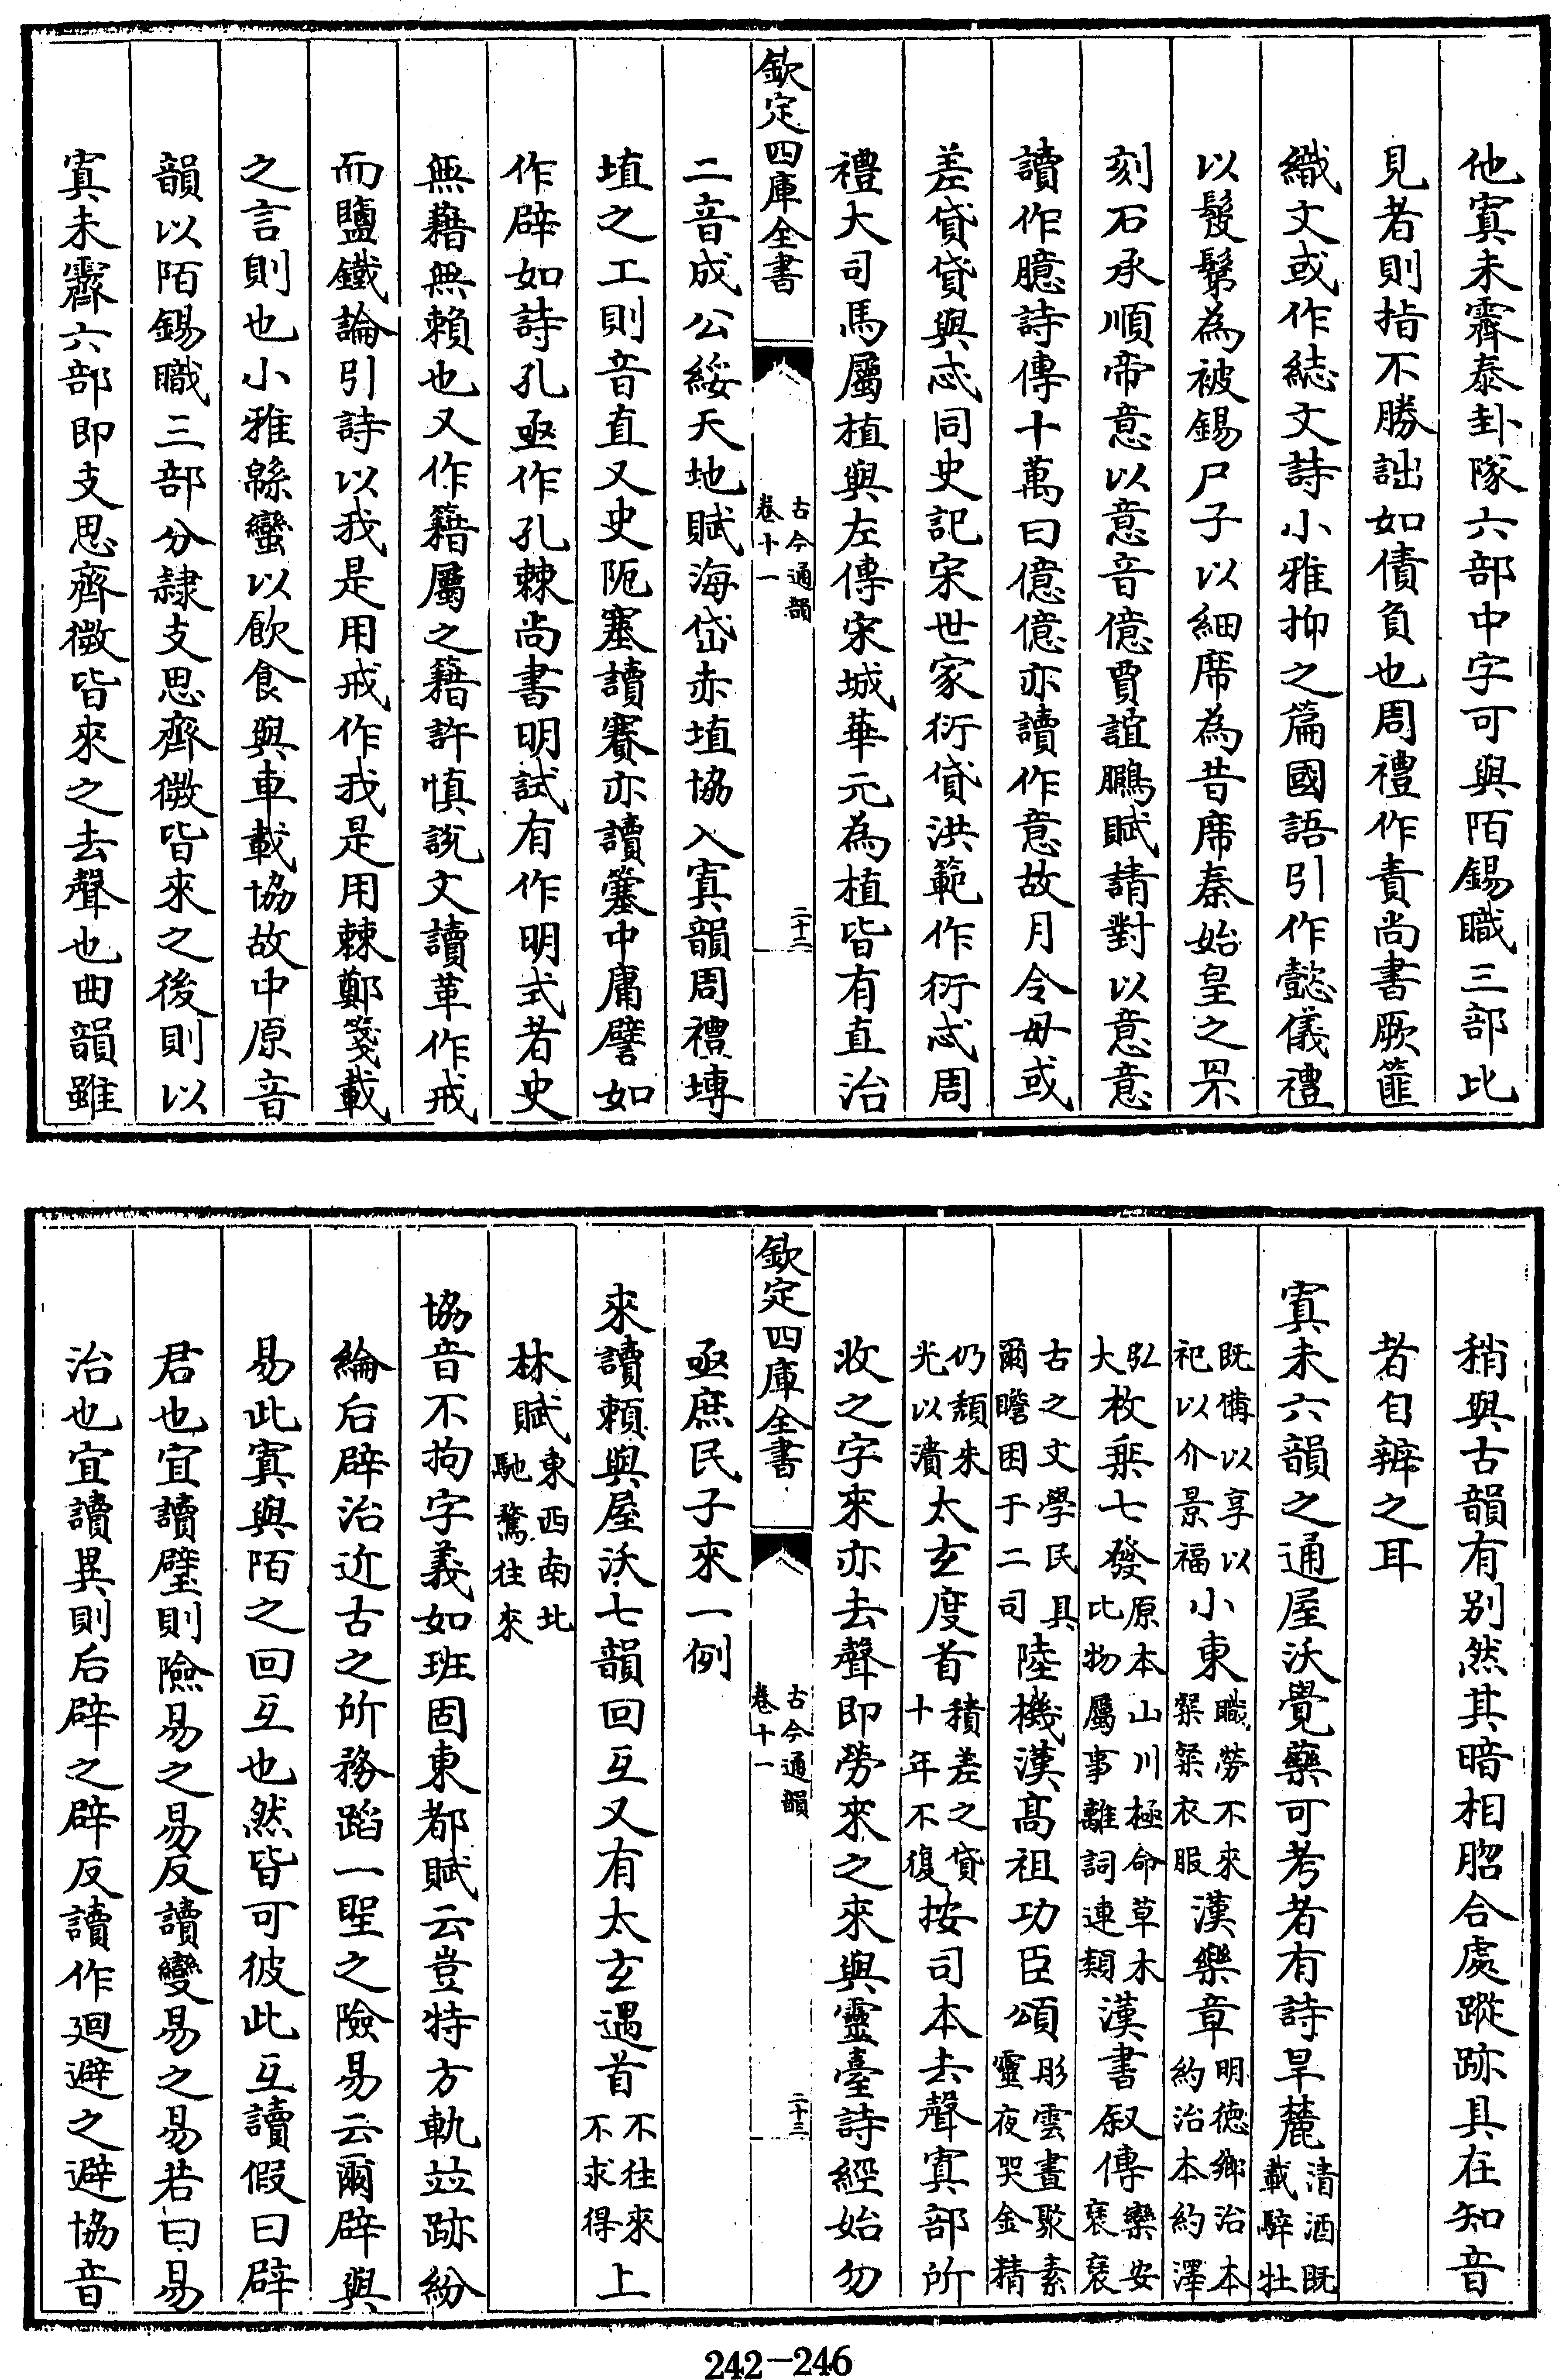 他寘未霽泰卦隊六部中字可與陌錫職三部比
見者則指不勝詘如債負也周禮作責尚書厥篚
織文或作綕文詩小雅抑之篇國語引作懿儀禮
以髲髢為被錫尸子以細席為昔席秦始皇之罘
刻石承順帝意以意音億賈誼鵩賦請對以意意
讀作臆詩傳十萬曰億億亦讀作意故月令毋或
差貸貸與忒同史記宋世家衍貸洪範作衍忒周
禮大司馬屬植與左傳宋城華元為植皆有直治
欽定四庫全書
古今通韻
卷十一
二十二
二音成公綏天地賦海岱赤埴協入寘韻周禮塼
埴之工則音直又史阨塞讀賽亦讀簺中庸譬如
作辟如詩孔亟作孔棘尚書明試有作明式者史
無藉無賴也又作籍屬之籍許慎說文讀革作戒
而鹽鐵論引詩以我是用戒作我是用棘鄭箋載
之言則也小雅緜蠻以飲食與車載協故中原音
韻以陌錫職三部分隸支思齊微皆來之後則以
寘未霽六部即支思齊微皆來之去聲也曲韻雖
稍與古韻有別然其暗相脗合處蹤跡具在知音
者自辧之耳
寘未六韻之通屋沃覺藥可考者有詩旱麓清酒既
載騂牡
既備以享以
祀以介景福小東職勞不來
粲粲衣服漢樂章明德鄉治本
約治本約澤
弘
大枚乗七發原本山川極命草木
比物屬事離詞連類漢書叙傳欒安
裒裒
古之文學民具
爾瞻困于二司陸機漢高祖功臣頌彤雲晝聚素
靈夜哭金精
仍頹朱
光以潰太玄度首積差之貸
十年不復按司本去聲寘部所
收之字來亦去聲即勞來之來與靈臺詩經始勿
欽定四庫全書
古今通韻
卷十一
二十三
亟庶民子來一例
來讀賴與屋沃七韻回互又有太玄遇首不往來
不求得上
林賦東西南北
馳騖往來
協音不拘字義如班固東都賦云豈特方軌竝跡紛
綸后辟治近古之所務蹈一聖之險易云爾辟與
易此寘與陌之回互也然皆可彼此互讀假曰辟
君也宜讀璧則險易之易反讀變易之易若曰易
治也宜讀異則后辟之辟反讀作廻避之避協音
242-246